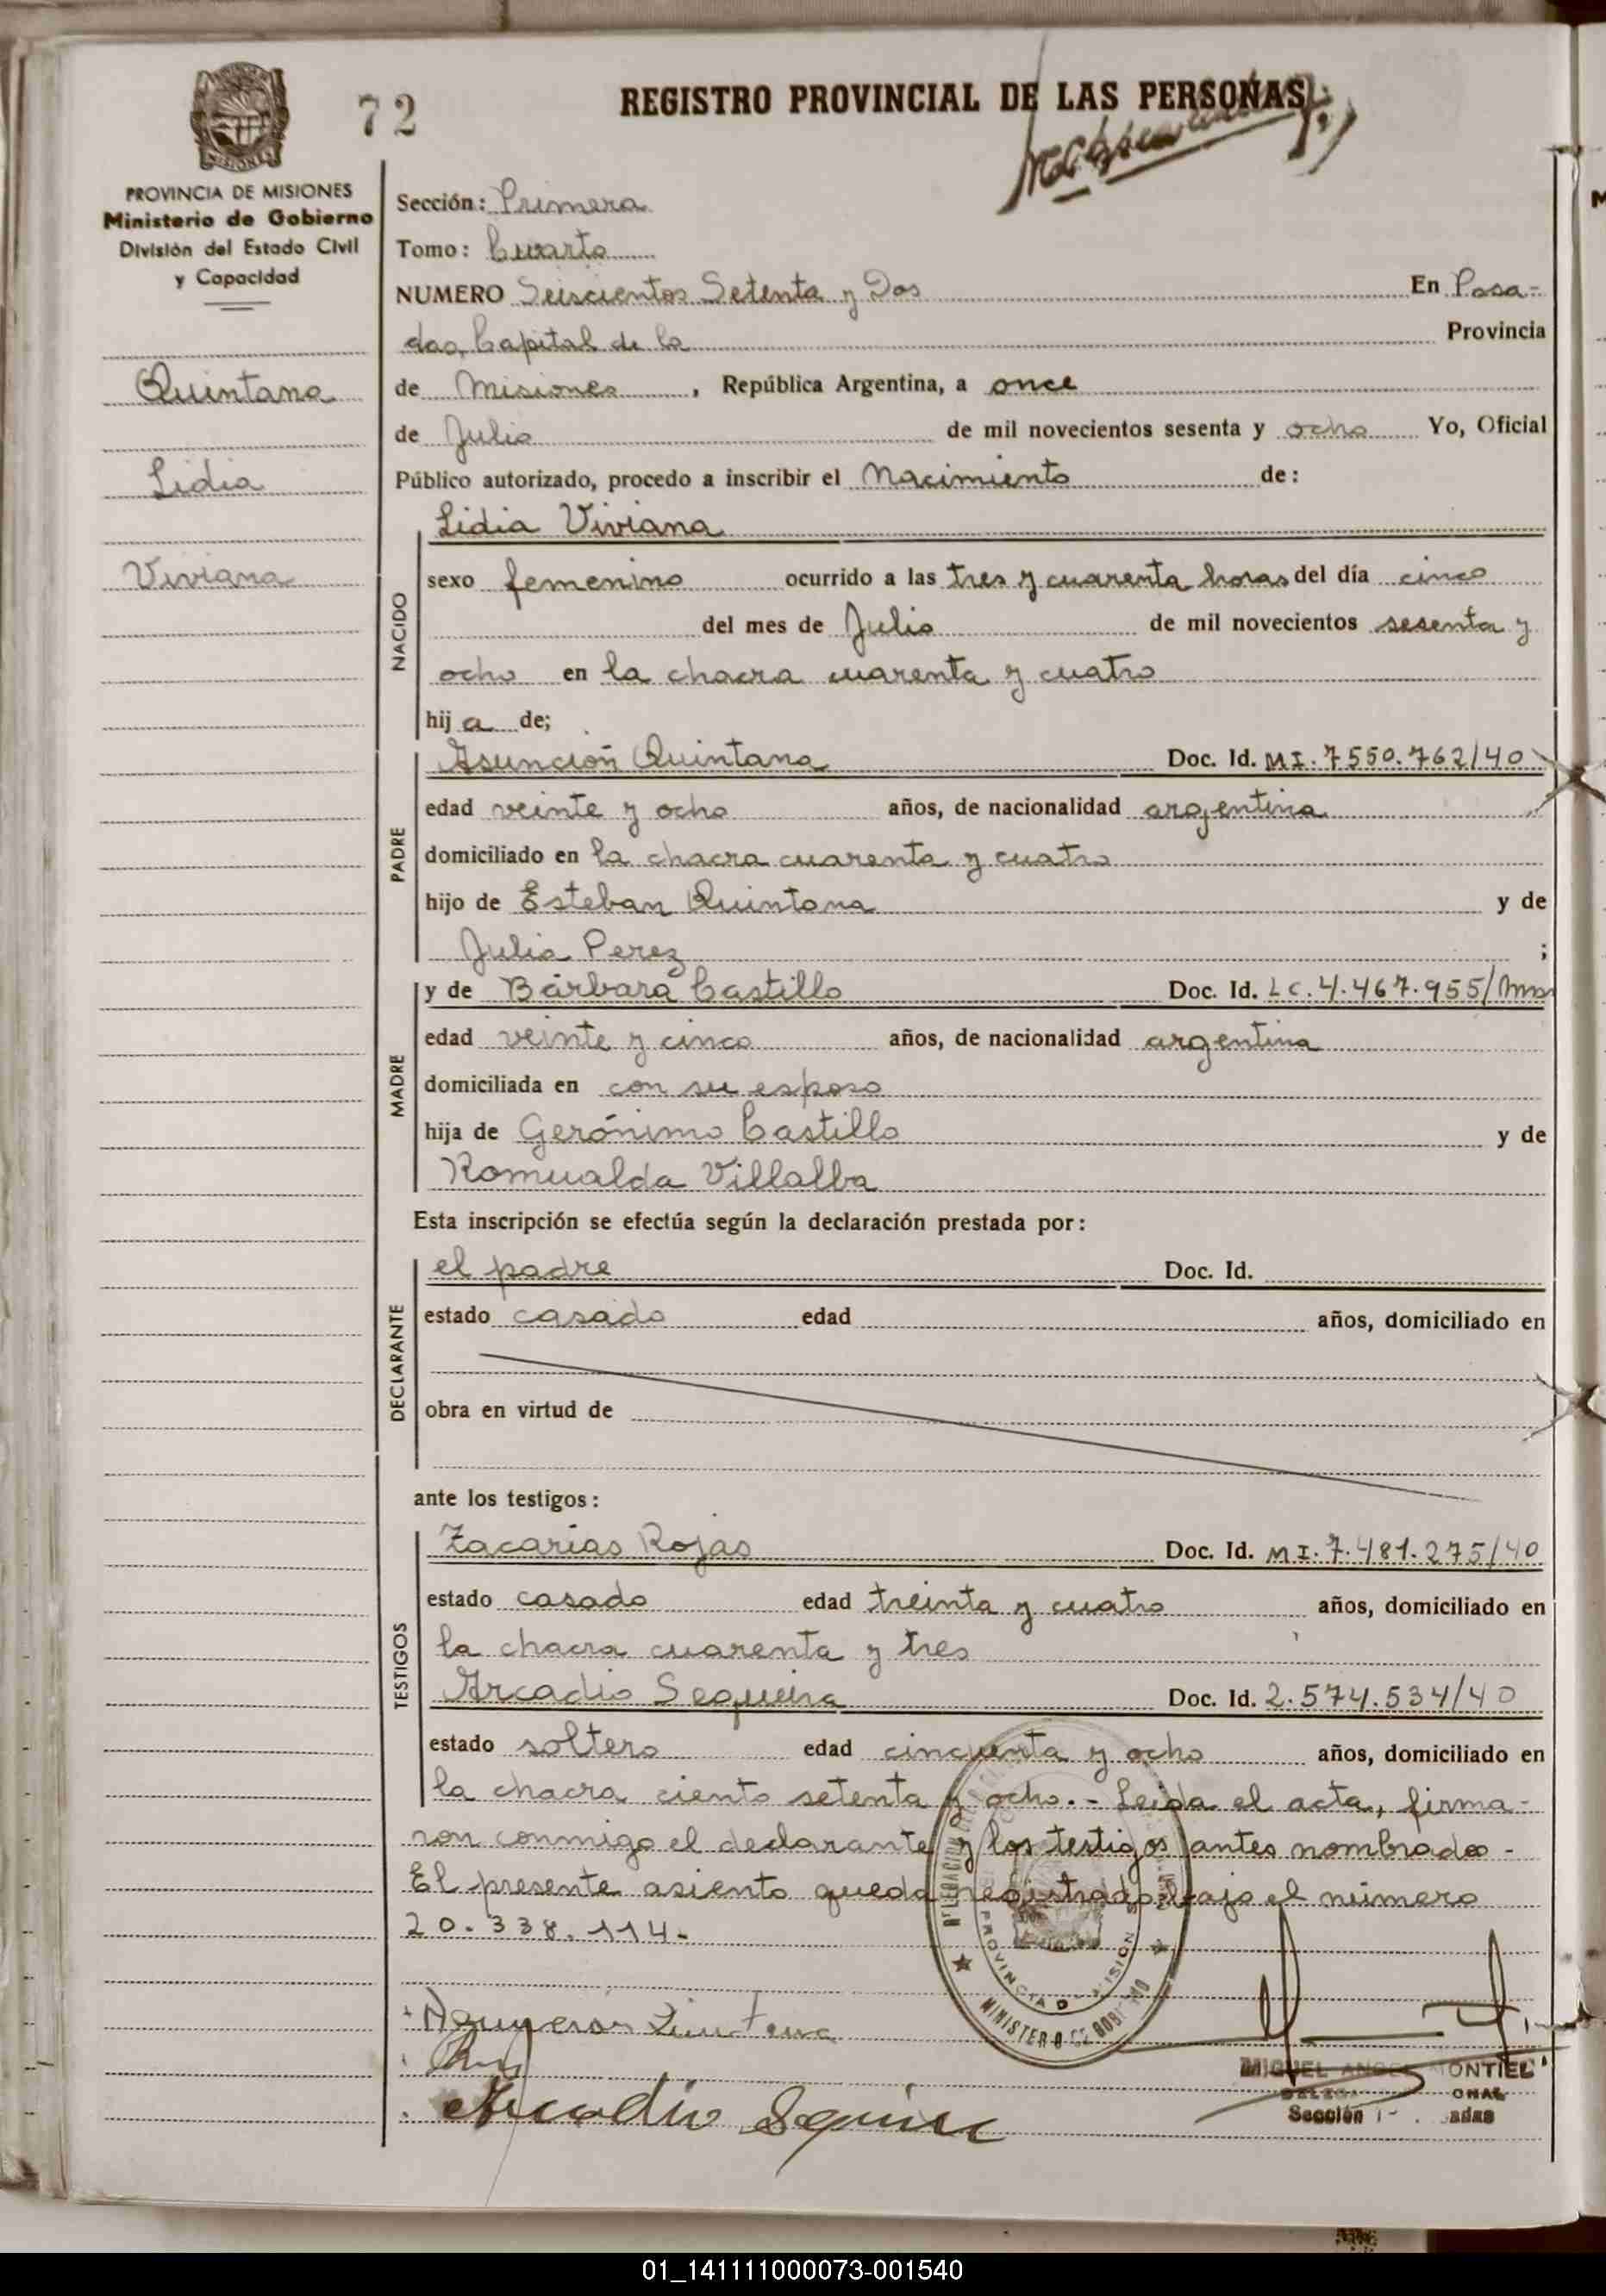 72
REGISTRO PROVINCIAL DE LAS PERSONAS
MISIONES
PROVINCIA DE MISIONES
Ministerio de Gobierno
División del Estado Civil
y Capacidad
Quintana
Lidia
Viviana
Sección: Primera
Tomo: Cuarto
NUMERO Seiscientos Setenta y Dos En Posa-
das, Capital de la Provincia
de Misiones, República Argentina, a once
de Julio de mil novecientos sesenta y ocho Yo, Oficial
Público autorizado, procedo a inscribir el Nacimiento de:
NACIDO
Lidia Viviana
sexo femenino ocurrido a las tres y cuarenta horas del día cinco
del mes de Julio de mil novecientos sesenta y
ocho en la chacra cuarenta y cuatro
hija de;
PADRE
Asunción Quintana Doc. Id. MI. 7550.762/40
edad veinte y ocho años, de nacionalidad argentina
domiciliado en la chacra cuarenta y cuatro
hijo de Esteban Quintana y de
Julia Perez ;
MADRE
y de Bárbara Castillo Doc. Id. LC. 4.467.955/Mns
edad veinte y cinco años, de nacionalidad argentina
domiciliada en con su esposo
hija de Gerónimo Castillo y de
Romualda Villalba
Esta inscripción se efectúa según la declaración prestada por:
DECLARANTE
el padre Doc. Id.
estado casado edad años, domiciliado en
obra en virtud de
ante los testigos:
TESTIGOS
Zacarías Rojas Doc. Id. MI. 7.481.275/40
estado casado edad treinta y cuatro años, domiciliado en
la chacra cuarenta y tres
Arcadio Sequeira Doc. Id. 2.574.534/40
estado soltero edad cincuenta y ocho años, domiciliado en
la chacra ciento setenta y ocho.- Leida el acta, firma-
ron conmigo el declarante y los testigos antes nombrados-
El presente asiento queda registrado bajo el número
20.338.114-
PROVINCIA DE MISIONES
MINISTERIO DE GOBIERNO
MIGUEL ANGEL MONTIEL
Sección
01_141111000073-001540